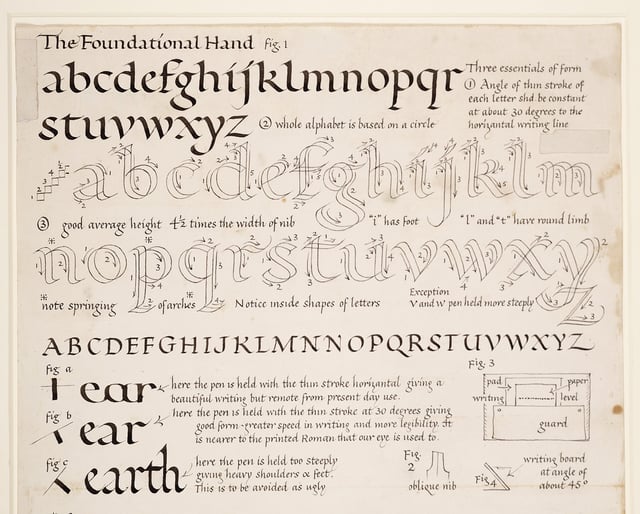 The Foundational Hand fig. 1
abcdefghijklmnopqr
stuvwxyz
Three essentials of form
① Angle of thin stroke of
each letter shd be constant
at about 30 degrees to the
horizontal writing line
② whole alphabet is based on a circle
abcdefghijklm
③ good average height 4½ times the width of nib
"i" has foot
"l" and "t" have round limb
nopqrstuvwxyz
note springing of arches
Notice inside shapes of letters
Exception
V and W pen held more steeply
ABCDEFGHIJKLMNNOPQRSTUVWXYZ
fig a
ear
here the pen is held with the thin stroke horizontal giving a
beautiful writing but remote from present day use.
fig b
ear
here the pen is held with the thin stroke at 30 degrees giving
good form - greater speed in writing and more legibility. It
is nearer to the printed Roman that our eye is used to.
fig c
earth
here the pen is held too steeply
giving heavy shoulders & feet.
This is to be avoided as ugly
Fig. 3
pad
paper
writing
level
guard
Fig. 2
oblique nib
Fig 4
writing board
at angle of
about 45°